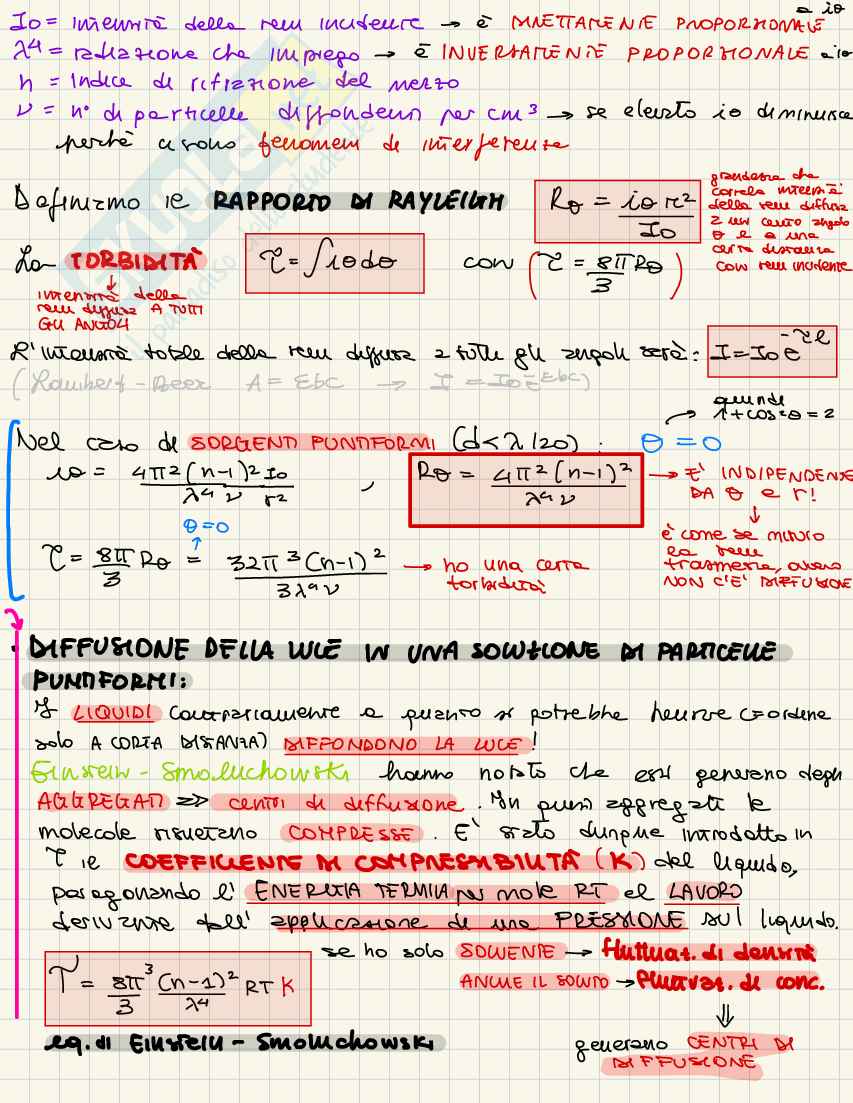 a iθ
I₀ = intensità della rad incidente → è DIRETTAMENTE PROPORZIONALE
λ⁴ = radiazione che impiego → è INVERSAMENTE PROPORZIONALE a iθ
n = indice di rifrazione del mezzo
ν = n° di particelle diffondenti per cm³ → se elevato iθ diminuisce
perché ci sono fenomeni di interferenza
Definiamo il RAPPORTO DI RAYLEIGH
Rθ = iθ r² / I₀
grandezza che
correla intensità
della rad diffusa
a un certo angolo
θ e a una
certa distanza
con rad incidente
La TORBIDITÀ
τ = ∫ iθ dθ
con (τ = 8π/3 Rθ)
intensità della
rad diffusa A TUTTI
GLI ANGOLI
L'intensità totale della rad diffusa a tutti gli angoli sarà: I = I₀ e^-τl
(Lambert-Beer A = Ebc → I = I₀ e^-Ebc)
quindi
1+cos²θ = 2
Nel caso di SORGENTI PUNTIFORMI (d<λ/20) : θ = 0
iθ = 4π²(n-1)² I₀ / λ⁴ ν r² , Rθ = 4π²(n-1)² / λ⁴ν → E' INDIPENDENTE
DA θ e r!
è come se misuro
la rad
trasmessa, ovvero
NON C'E' DIFFUSIONE
θ=0
τ = 8π/3 Rθ = 32π³(n-1)² / 3λ⁴ν → ho una certa
torbidità
· DIFFUSIONE DELLA LUCE IN UNA SOLUZIONE DI PARTICELLE
PUNTIFORMI:
I LIQUIDI (contrariamente a quanto si potrebbe pensare ordine
solo A CORTA DISTANZA) DIFFONDONO LA LUCE!
Einstein - Smoluchowski hanno notato che essi generano degli
AGGREGATI => centri di diffusione. In questi aggregati le
molecole risultano COMPRESSE. E' stato dunque introdotto in
τ il COEFFICIENTE DI COMPRESSIBILITÀ (K) del liquido,
paragonando l' ENERGIA TERMICA per mole RT al LAVORO
derivante dall' applicazione di una PRESSIONE sul liquido.
se ho solo SOLVENTE → fluttuaz. di densità
τ = 8π³/3 (n-1)²/λ⁴ RT K
ANCHE IL SOLUTO → fluttuaz. di conc.
⇓
eq. di Einstein - Smoluchowski
generano CENTRI DI
DIFFUSIONE